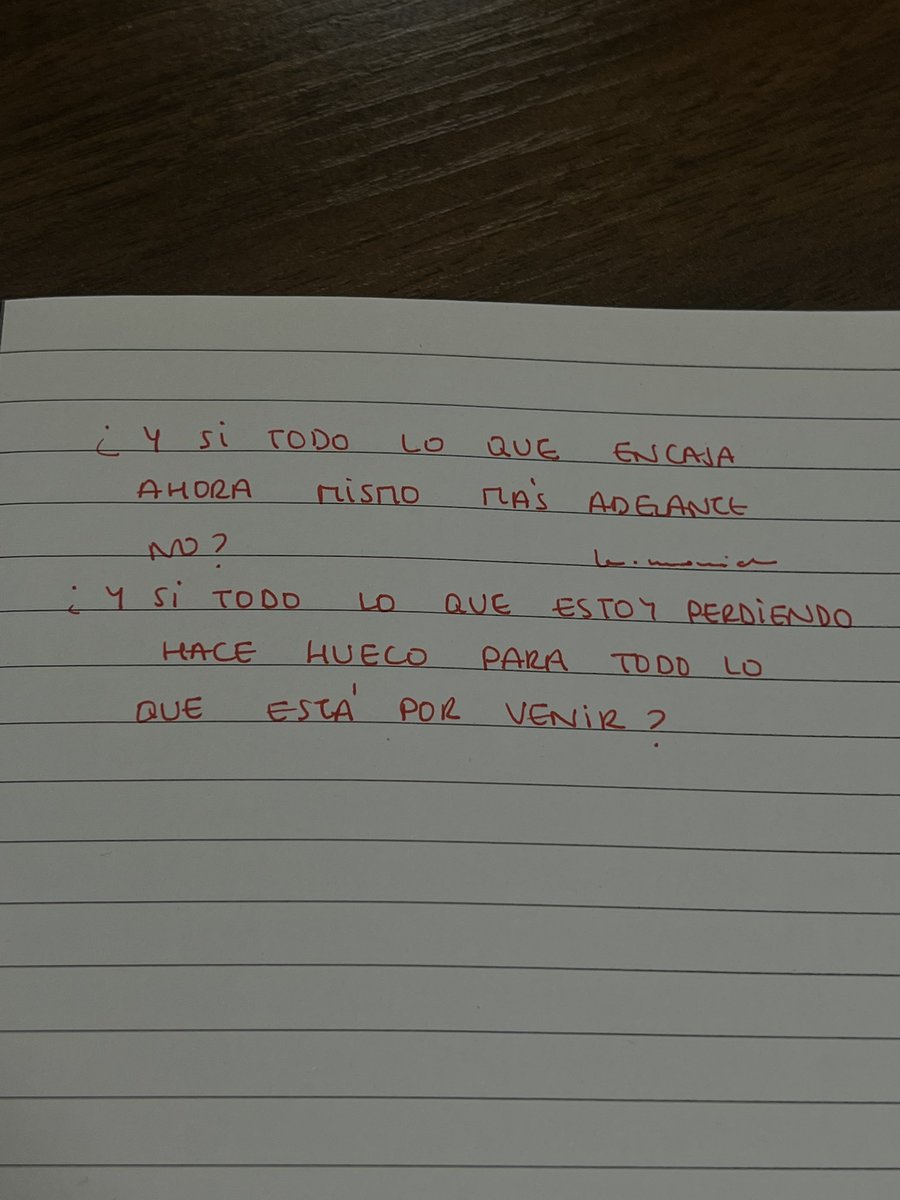 ¿Y SI TODO LO QUE ENCAJA
AHORA MISMO MÁS ADELANTE
NO?
¿Y SI TODO LO QUE ESTOY PERDIENDO
HACE HUECO PARA TODO LO
QUE ESTÁ POR VENIR?